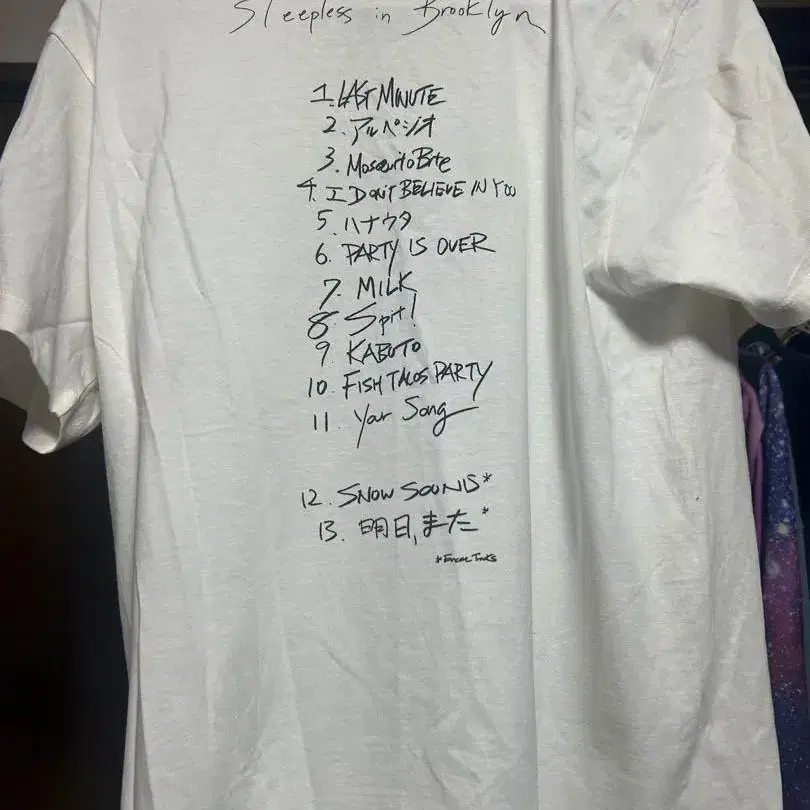 Sleepless in Brooklyn
1. LAST MINUTE
2. アルペジオ
3. Mosquito Bite
4. I DON'T BELIEVE IN YOU
5. ハナウタ
6. PARTY IS OVER
7. MILK
8 Spit!
9 KABUTO
10. FISH TACOS PARTY
11. Your Song
12. SNOW SOUNDS*
13. 明日、また*